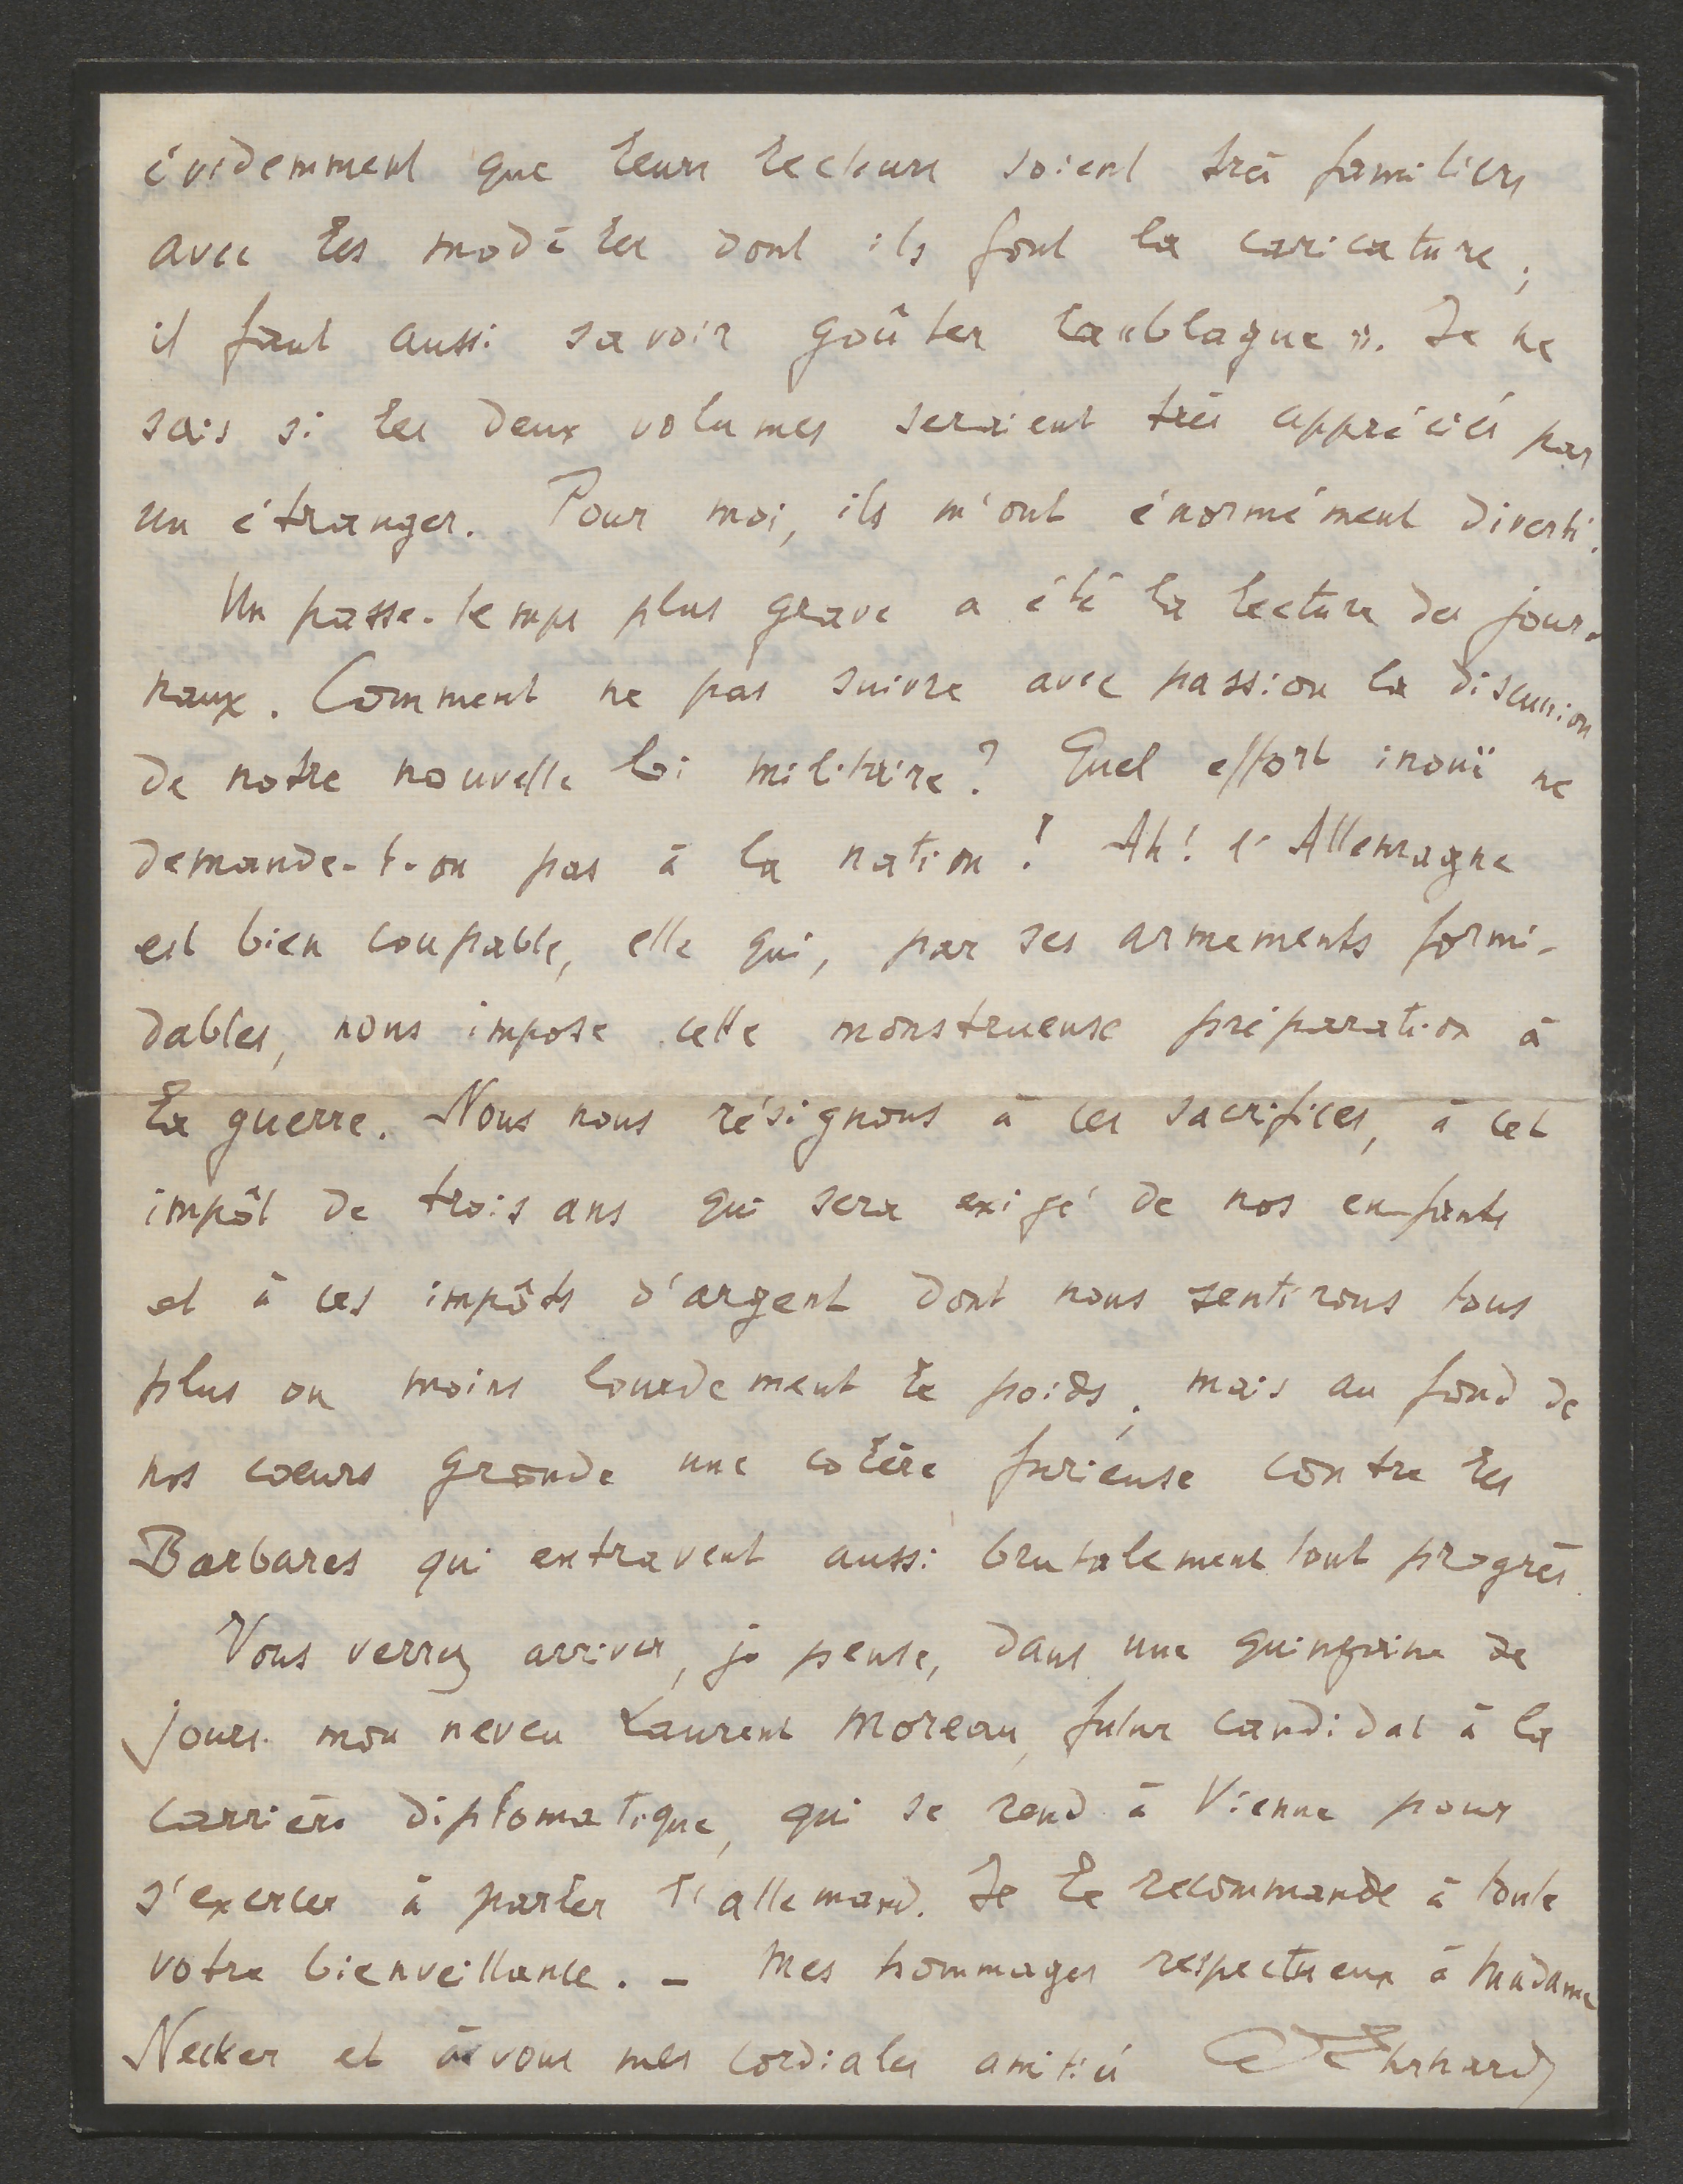 évidemment que leurs lecteurs soient très familiers
avec les modèles dont ils font la caricature ;
il faut aussi savoir goûter la « blague ». Je ne
sais si les deux volumes seraient très appréciés par
un étranger. Pour moi, ils m'ont énormément diverti.
Un passe-temps plus grave a été la lecture des jour-
naux. Comment ne pas suivre avec passion la discussion
de notre nouvelle loi militaire ? Quel effort inouï ne
demande-t-on pas à la nation ! Ah ! l'Allemagne
est bien coupable, elle qui, par ses armements formi-
dables, nous impose cette monstrueuse préparation à
la guerre. Nous nous résignons à ces sacrifices, à cet
impôt de trois ans qui sera exigé de nos enfants
et à ces impôts d'argent dont nous sentirons tous
plus ou moins lourdement le poids ; mais au fond de
nos cœurs gronde une colère furieuse contre les
Barbares qui entravent aussi brutalement tout progrès.
Vous verrez arriver, je pense, dans une quinzaine de
jours mon neveu Laurent Moreau, futur candidat à la
carrière diplomatique, qui se rend à Vienne pour
s'exercer à parler l'allemand. Je le recommande à toute
votre bienveillance. — Mes hommages respectueux à Madame
Necker et à vous mes cordiales amitiés Ehrhard